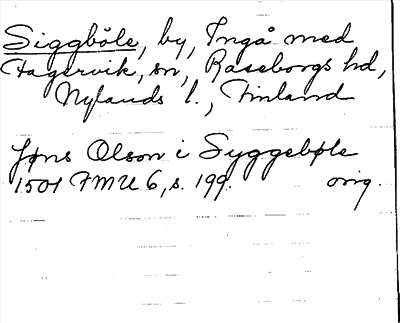 Siggböle, by, Ingå med
Fagervik, sn, Raseborgs hd,
Nylands l., Finland
Jøns Olson i Syggebøle
1501 FMU 6, s. 199. orig.